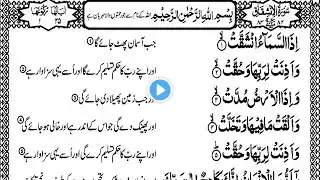 بِسْمِ اللهِ الرَّحْمٰنِ الرَّحِيْمِ اللہ کے نام سے جو رحمٰن و رحیم ہے
اِذَا السَّمَآءُ انْشَقَّتْ ۱ جب آسمان پھٹ جائے گا
وَاَذِنَتْ لِرَبِّهَا وَحُقَّتْ ۲ اور اپنے رب کا حکم تسلیم کرے گا اور اُسے یہی سزاوار ہے
وَاِذَا الْاَرْضُ مُدَّتْ ۳ زمین پھیلا دی جائے گی
وَاَلْقَتْ مَا فِيْهَا وَتَخَلَّتْ ۴ اور پھینک دے گی جو اس کے اندر ہے اور خالی ہو جائے گی
وَاَذِنَتْ لِرَبِّهَا وَحُقَّتْ ۵ اور اپنے رب کا حکم تسلیم کرے گی اور اُسے یہی سزاوار ہے